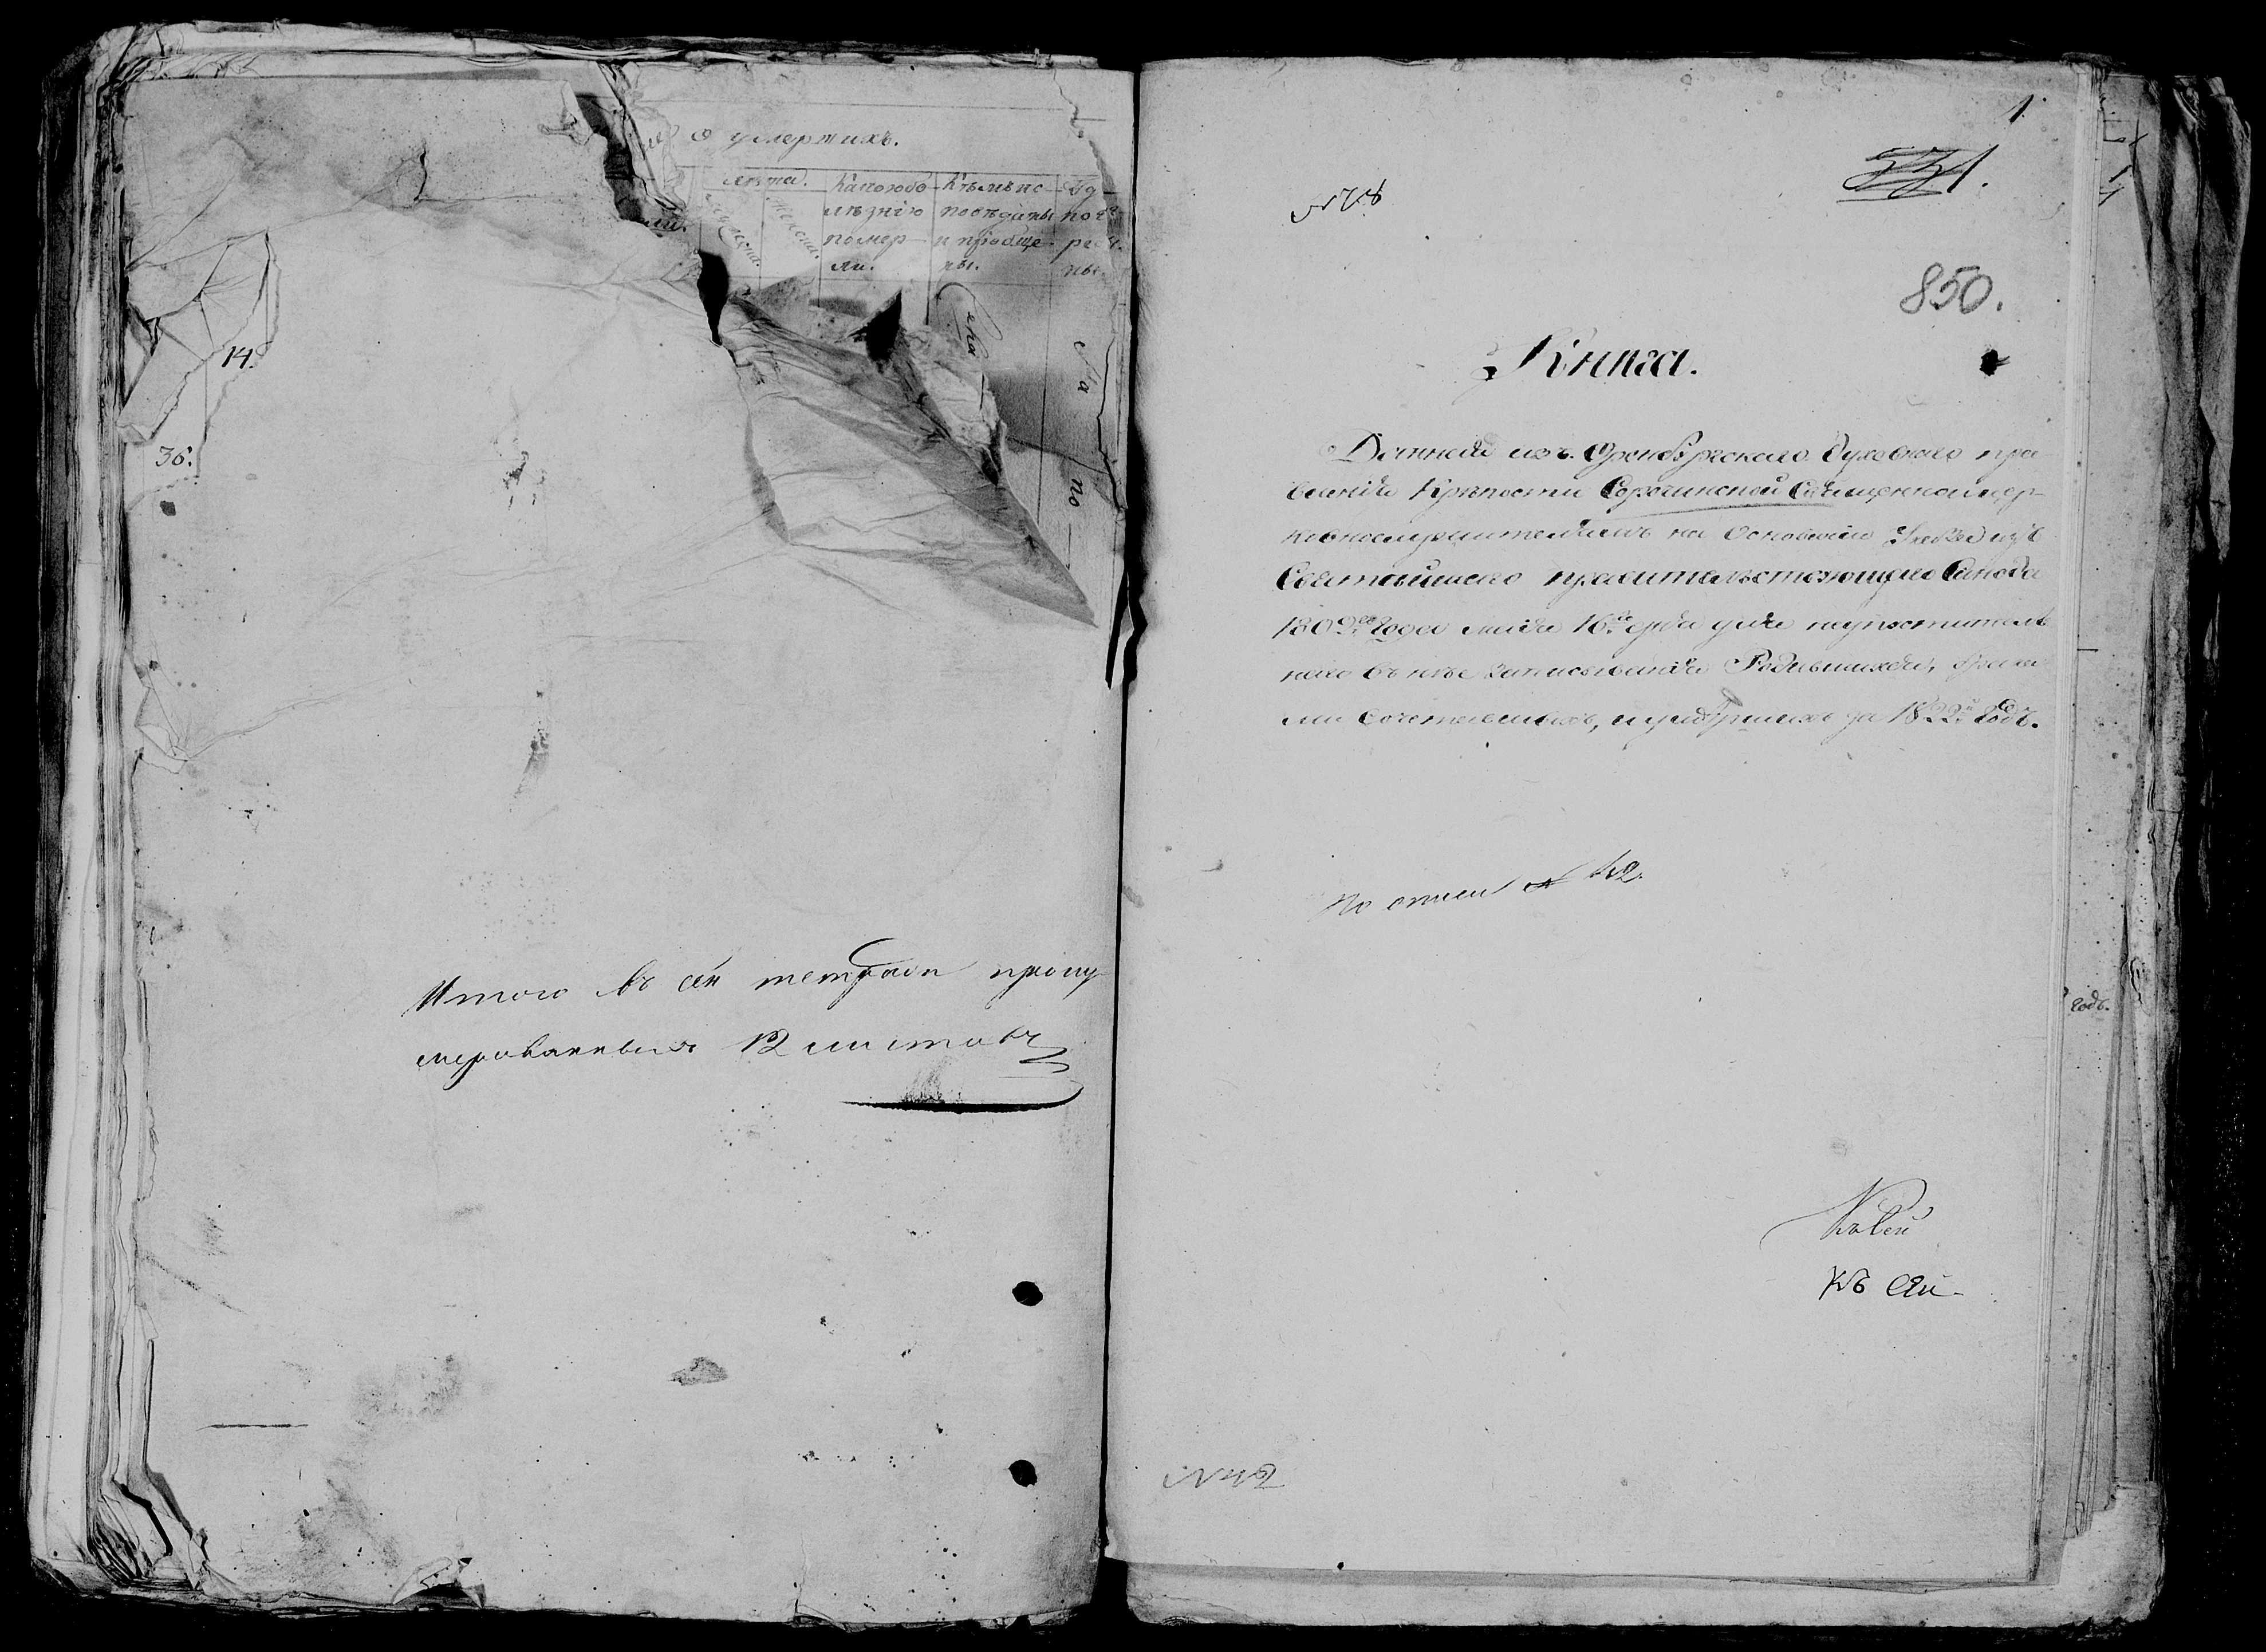 о умершихъ.
лѣта.
Какою бо-
лѣзнію
помер-
ли.
Кѣмъ ис-
повѣданы
и приобще-
ны.
14.
36.
На
по
Итого въ сей тетради прону-
мерованныхъ 12 листовъ
1.
331.
850.
Книга.
Данная изъ Оренбургскаго духовнаго пра
вленія Крѣпости Сорочинской Священноцер-
ковнослужителямъ на основаніи Указа изъ
Святѣйшаго правительствующаго Синода
1802го года маія 16го дня для
наго въ нее записыванія Родившихся, брака
ми сочетавшихъ, и умершихъ за 1822й Годъ.
По описи № 42.
Къ сей
№ 42
Годъ.